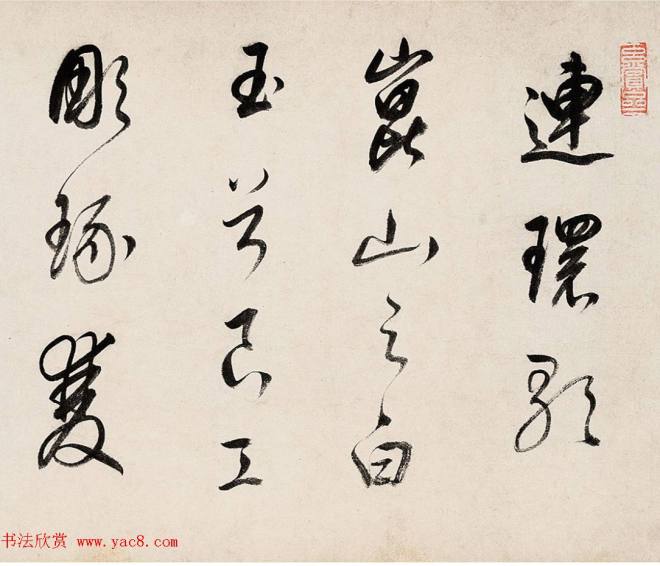 連環歌
崑山之白
玉兮良工
彫琢雙
书法欣赏 www.yac8.com